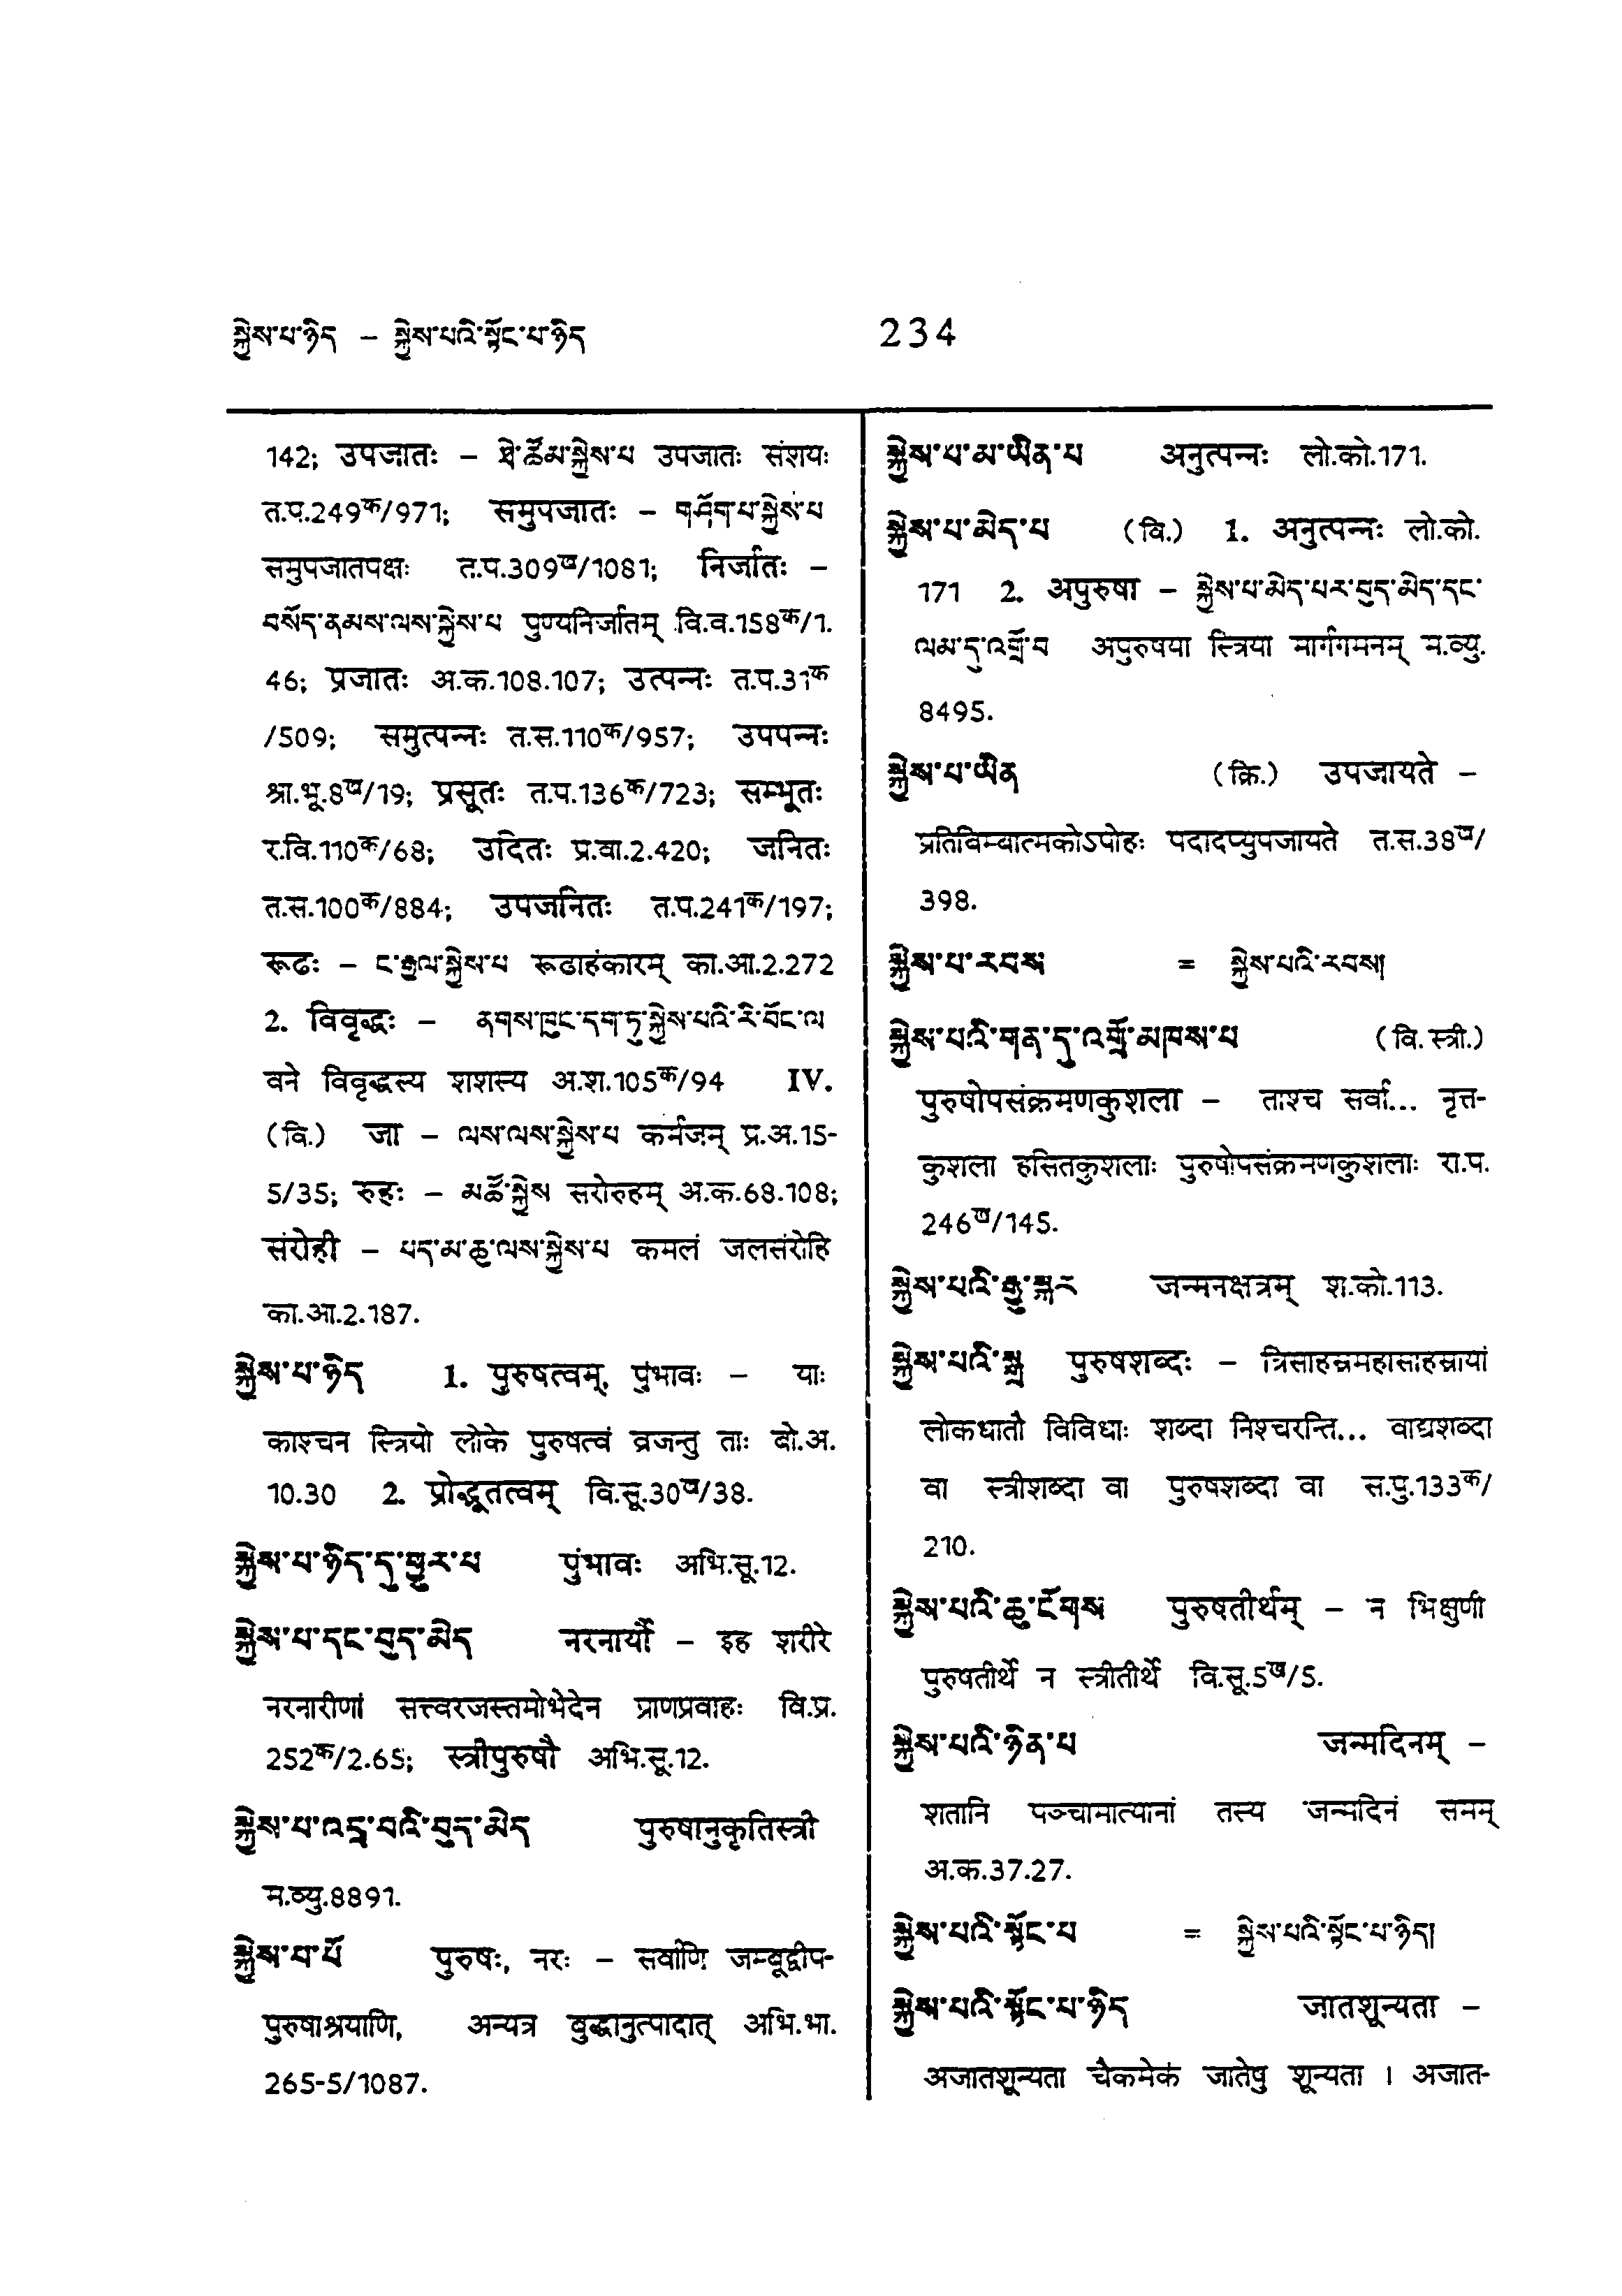 སྐྱེས་པ་ཉིད – སྐྱེས་པའི་སྟོང་པ་ཉིད
234
142; उपजातः – ཐེ་ཚོམ་སྐྱེས་པ उपजातः संशयः
त.प.249क/971; समुपजातः – གཤོག་པ་སྐྱེས་པ
समुपजातपक्षः त.प.309ख/1081; निर्जातः –
བསོད་ནམས་ལས་སྐྱེས་པ पुण्यनिर्जातम् वि.व.158क/1.
46; प्रजातः अ.क.108.107; उत्पन्नः त.प.31क
/509; समुत्पन्नः त.स.110क/957; उपपन्नः
श्रा.भू.8ख/19; प्रसूतः त.प.136क/723; सम्भूतः
र.वि.110क/68; उदितः प्र.वा.2.420; जनितः
त.स.100क/884; उपजनितः त.प.241क/197;
रूढः – ང་རྒྱལ་སྐྱེས་པ रूढाहंकारम् का.आ.2.272
2. विवृद्धः – ནགས་ཁུང་དག་ཏུ་སྐྱེས་པའི་རི་བོང་ལ
वने विवृद्धस्य शशस्य अ.श.105क/94 IV.
(वि.) जा – ལས་ལས་སྐྱེས་པ कर्मजम् प्र.अ.15-
5/35; रुहः – མཚོ་སྐྱེས सरोरुहम् अ.क.68.108;
संरोही – པད་མ་ཆུ་ལས་སྐྱེས་པ कमलं जलसंरोहि
का.आ.2.187.
སྐྱེས་པ་ཉིད 1. पुरुषत्वम्, पुंभावः – याः
काश्चन स्त्रियो लोके पुरुषत्वं व्रजन्तु ताः बो.अ.
10.30 2. प्रोद्भूतत्वम् वि.सू.30ख/38.
སྐྱེས་པ་ཉིད་དུ་གྱུར་པ पुंभावः अभि.सू.12.
སྐྱེས་པ་དང་བུད་མེད नरनार्यौ – इह शरीरे
नरनारीणां सत्त्वरजस्तमोभेदेन प्राणप्रवाहः वि.प्र.
252क/2.65; स्त्रीपुरुषौ अभि.सू.12.
སྐྱེས་པ་འདྲ་བའི་བུད་མེད पुरुषानुकृतिस्त्री
म.व्यु.8891.
སྐྱེས་པ་པོ पुरुषः, नरः – सर्वाणि जम्बूद्वीप-
पुरुषाश्रयाणि, अन्यत्र बुद्धानुत्पादात् अभि.भा.
265-5/1087.
སྐྱེས་པ་མ་ཡིན་པ अनुत्पन्नः लो.को.171.
སྐྱེས་པ་མེད་པ (वि.) 1. अनुत्पन्नः लो.को.
171 2. अपुरुषा – སྐྱེས་པ་མེད་པར་བུད་མེད་དང་
ལམ་དུ་འགྲོ་བ अपुरुषया स्त्रिया मार्गगमनम् म.व्यु.
8495.
སྐྱེས་པ་ཡིན (क्रि.) उपजायते –
प्रतिबिम्बात्मकोऽपोहः पदादप्युपजायते त.स.38ख/
398.
སྐྱེས་པ་རབས = སྐྱེས་པའི་རབས།
སྐྱེས་པའི་གན་དུ་འགྲོ་མཁས་པ (वि.स्त्री.)
पुरुषोपसंक्रमणकुशला – ताश्च सर्वा... नृत्त-
कुशला हसितकुशलाः पुरुषोपसंक्रमणकुशलाः रा.प.
246ख/145.
སྐྱེས་པའི་རྒྱུ་སྐར जन्मनक्षत्रम् श.को.113.
སྐྱེས་པའི་སྒྲ पुरुषशब्दः – त्रिसाहस्रमहासाहस्रायां
लोकधातौ विविधाः शब्दा निश्चरन्ति... वाद्यशब्दा
वा स्त्रीशब्दा वा पुरुषशब्दा वा स.पु.133क/
210.
སྐྱེས་པའི་ཆུ་ངོགས पुरुषतीर्थम् – न भिक्षुणी
पुरुषतीर्थे न स्त्रीतीर्थे वि.सू.5ख/5.
སྐྱེས་པའི་ཉིན་པ जन्मदिनम् –
शतानि पञ्चामात्यानां तस्य जन्मदिनं समम्
अ.क.37.27.
སྐྱེས་པའི་སྟོང་པ = སྐྱེས་པའི་སྟོང་པ་ཉིད།
སྐྱེས་པའི་སྟོང་པ་ཉིད जातशून्यता –
अजातशून्यता चैकमेकं जातेषु शून्यता । अजात-